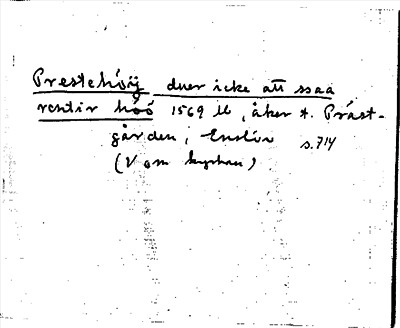 Prestehöij duer icke att ssaa
rentir höö 1569 ll, åker t. Präst-
gården, Enslöv s. 714
(V om kyrkan)